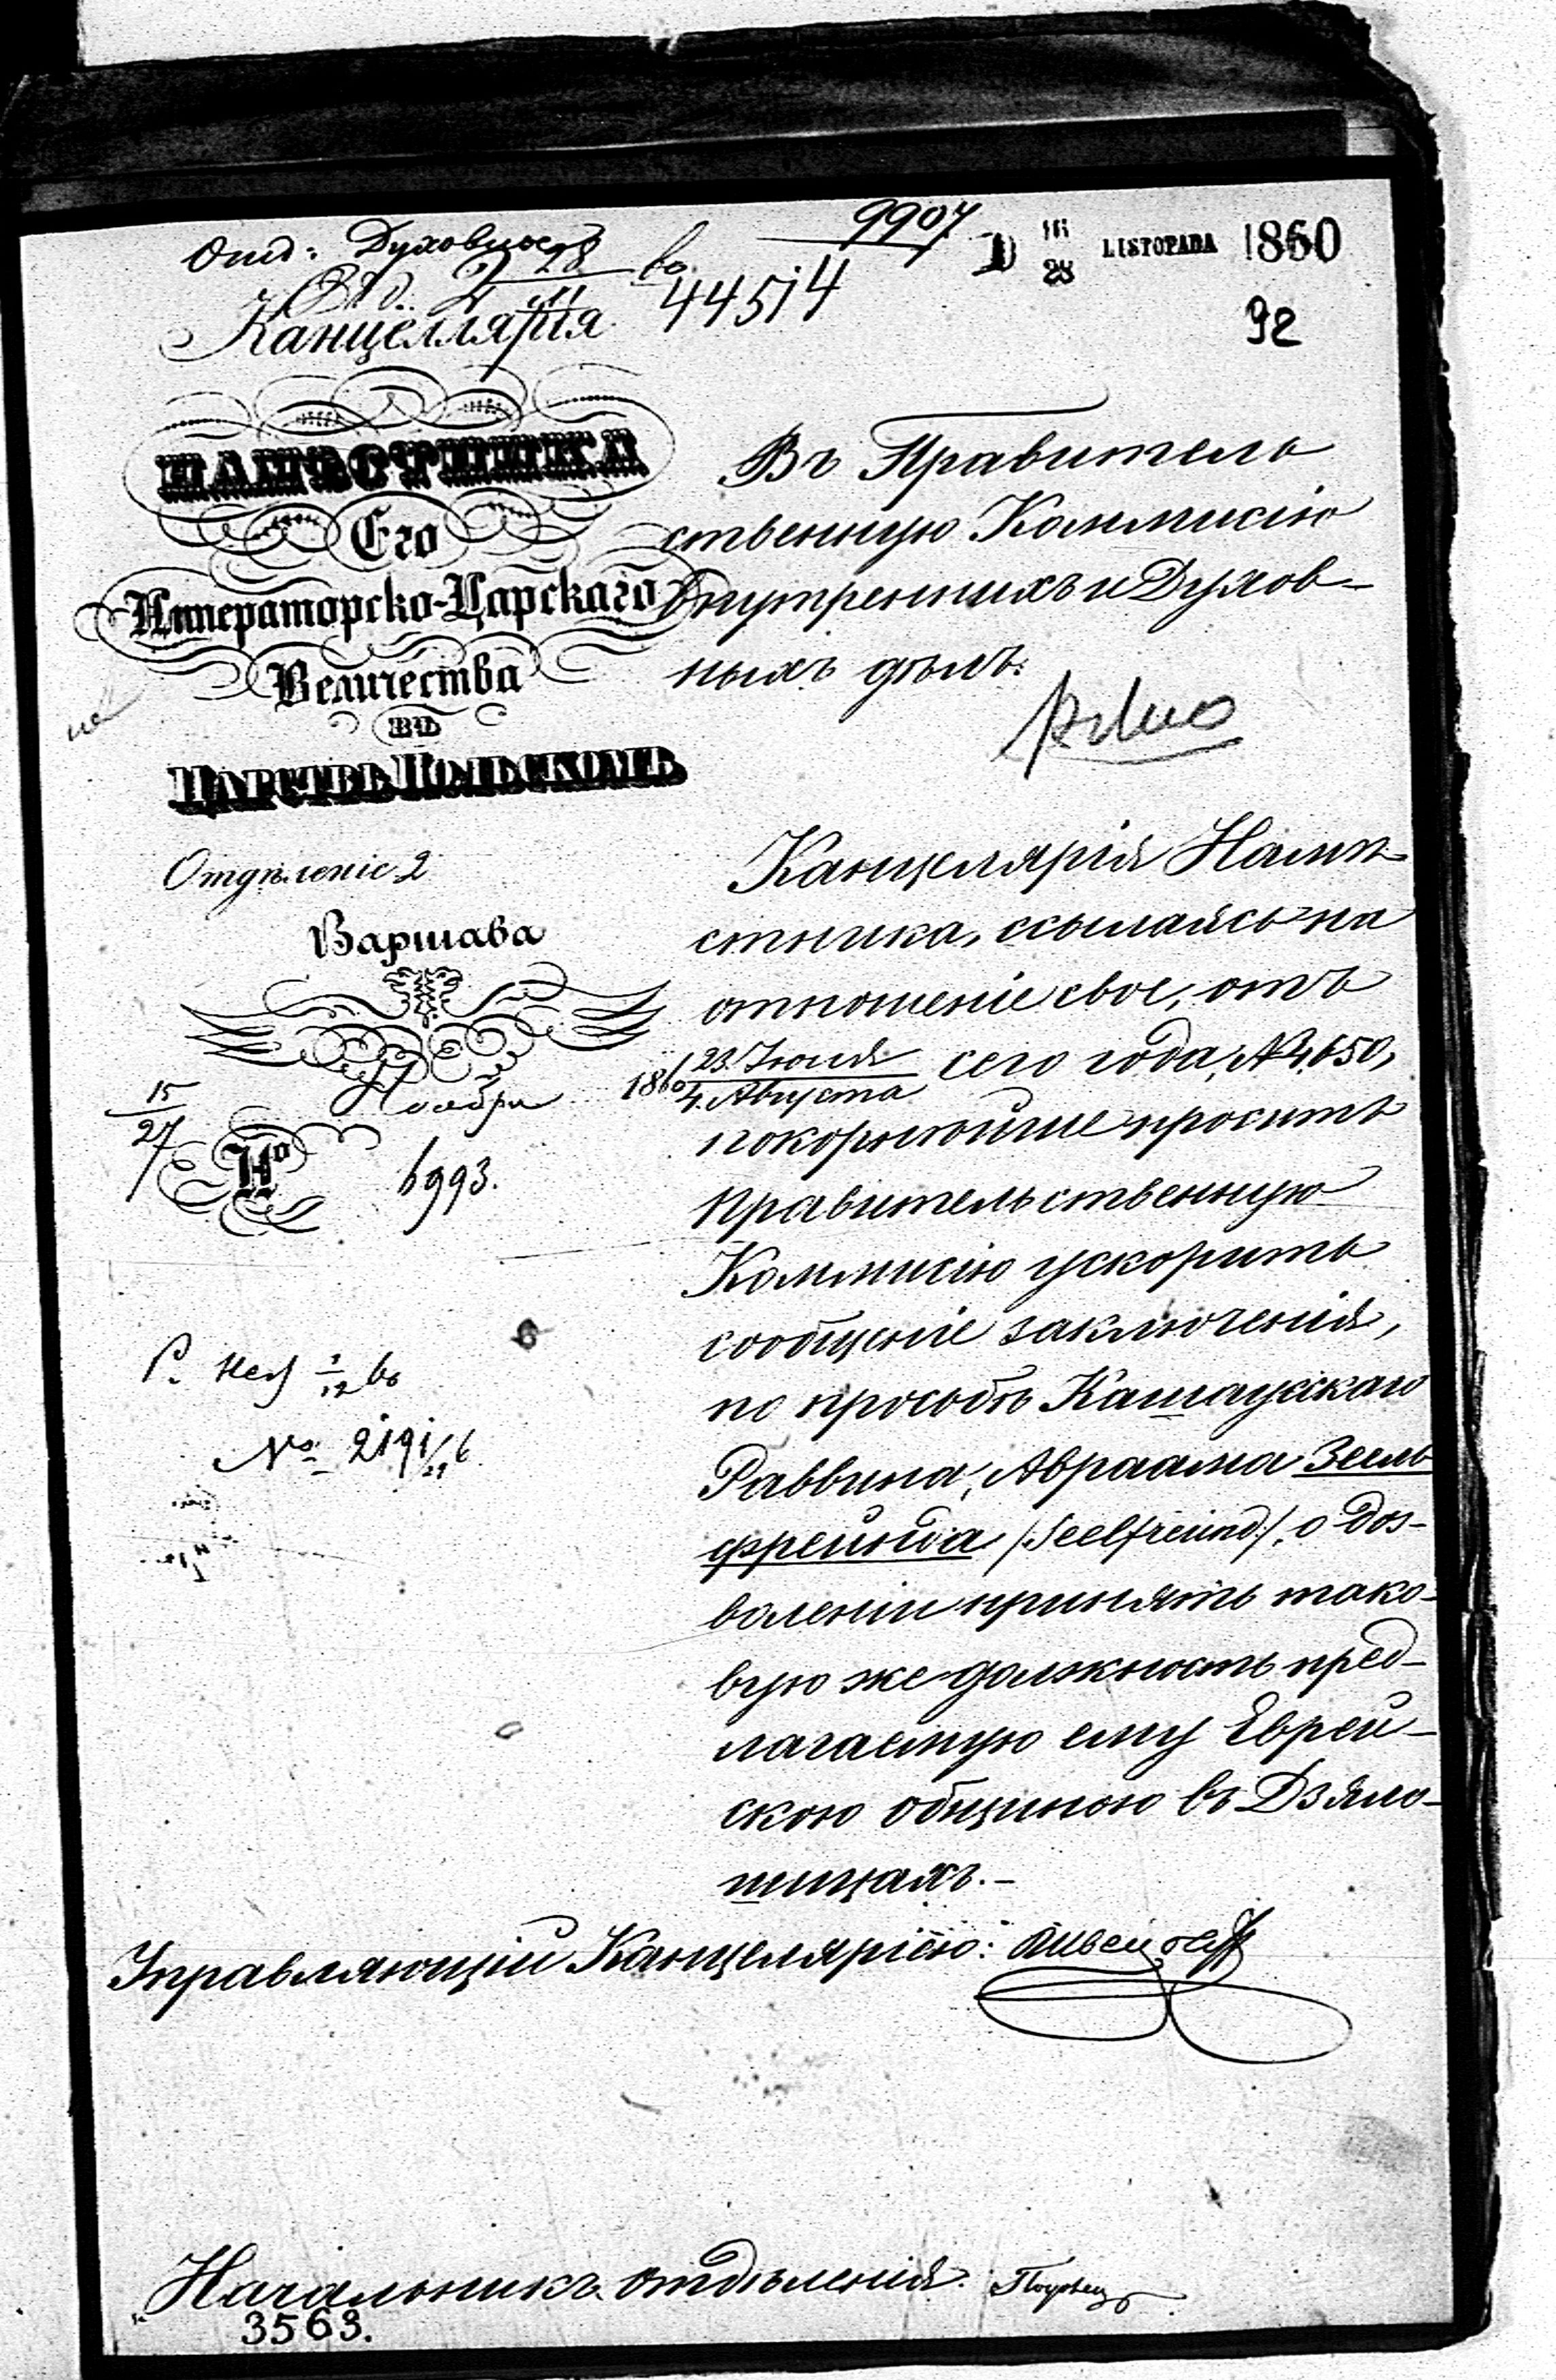 9907
D 16/28 LISTOPADA 1860
Отд: Духовное
28
44514
92
Канцеллярія
НАМѢСТНИКА
Его
Императорско-Царскаго
Величества
ВЪ
ЦАРСТВѢ ПОЛЬСКОМЪ
Отдѣленіе 2
Варшава
15/27 Ноября 1860
№ 6993.
№ 2191
Въ Правитель
ственную Коммисію
Внутреннихъ и Духов-
ныхъ дѣлъ.
Канцелярія Намѣ-
стника, ссылаясь на
отношеніе свое, отъ
23. Іюля/4. Августа сего года, № 4,650,
покорнѣйше проситъ
Правительственную
Коммисію ускорить
сообщеніе заключенія,
по просьбѣ Кашаускаго
Раввина, Авраама Зеель
фрейнда /Seelfreund/, о доз-
воленіи принять тако-
вую же должность пред-
лагаемую ему Еврей-
скою общиною въ Дзяло-
шицахъ.-
Управляющій Канцеляріею:
Начальникъ отдѣленія.
3563.